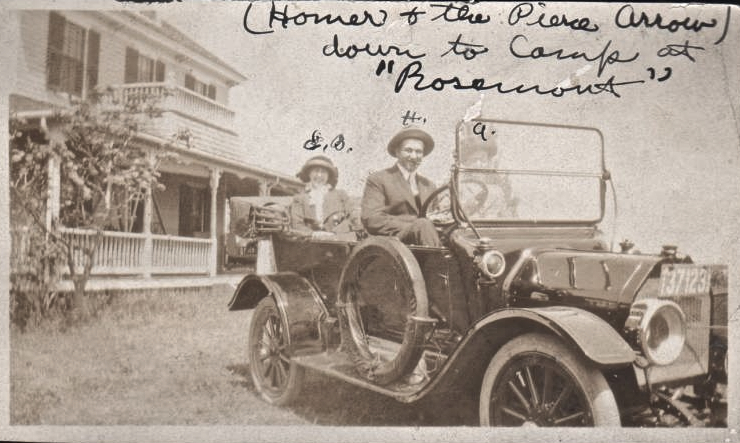 (Homer & the Pierce Arrow)
down to Camp at
"Rosemont"
H.
a.
E.B.
37123